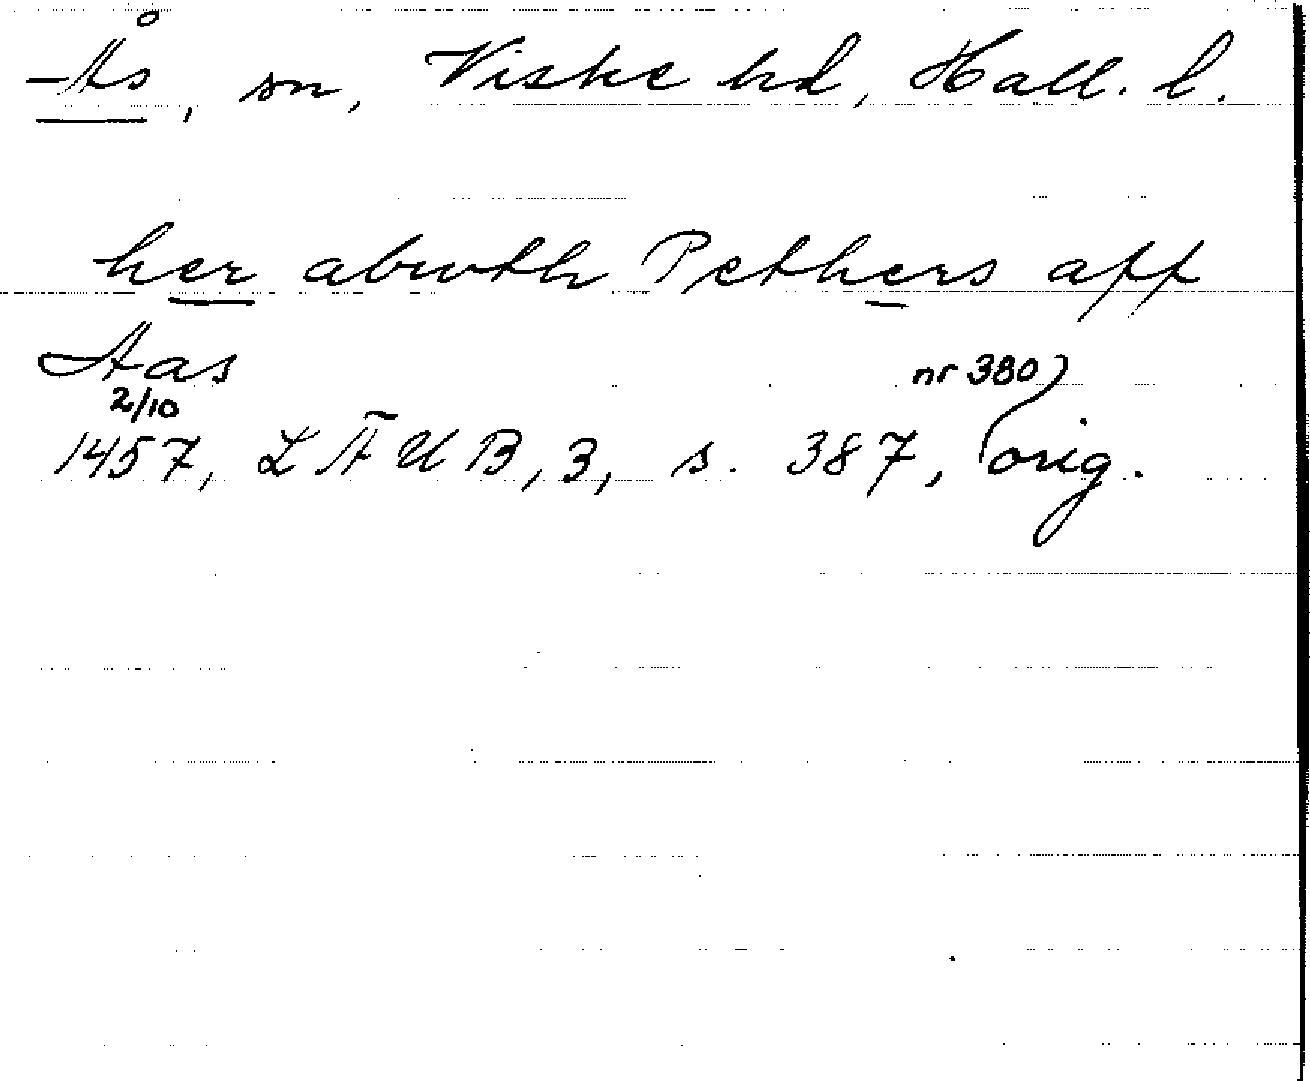 Ås, sn, Viske hd, Hall. l.
her abwth Pethers aff
Aas
2/10 nr 380)
1457, LÄUB, 3, s. 387, orig.